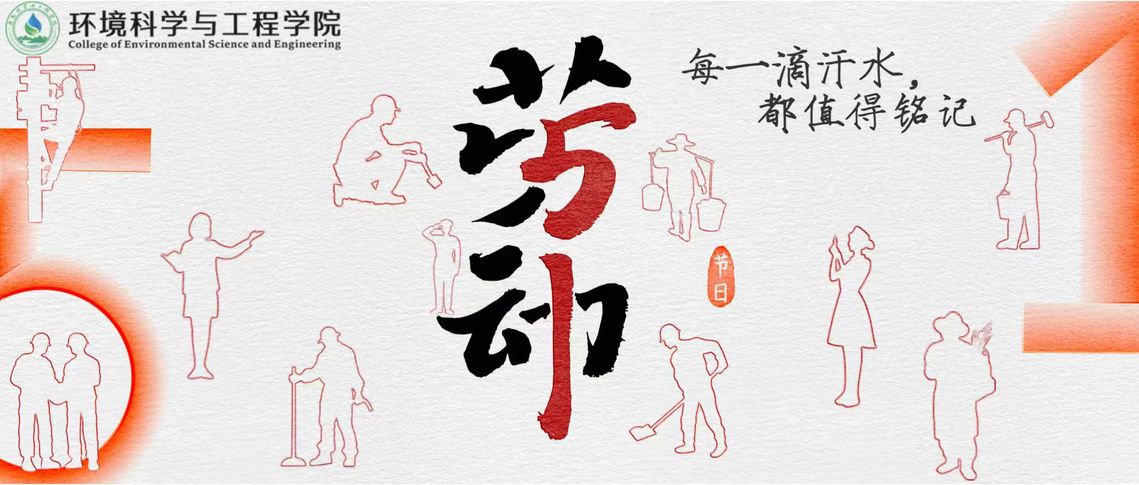 环境科学与工程学院
College of Environmental Science and Engineering
每一滴汗水,
都值得铭记
劳动
节日